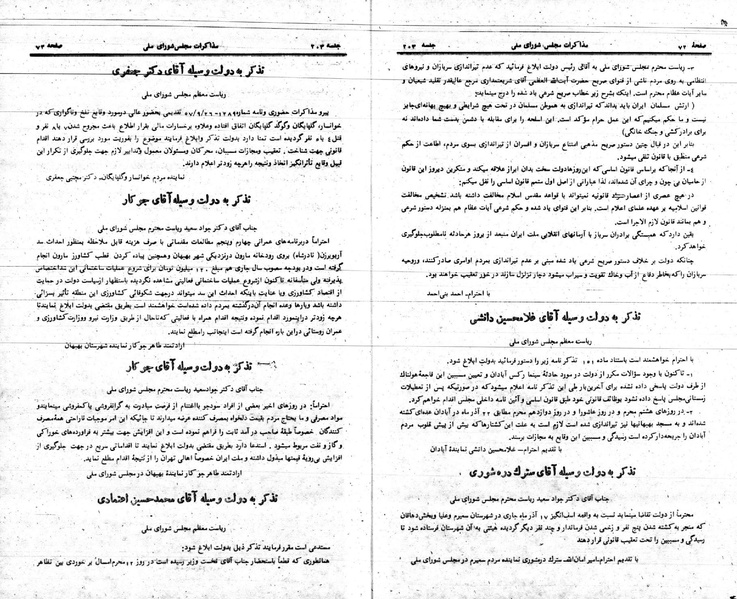 صفحهٔ ۷۲ مذاکرات مجلس شورای ملی جلسه ۲۰۳
ـ ریاست محترم مجلس شورای ملی به آقای رئیس دولت ابلاغ فرمائید که عدم تیراندازی سربازان و نیروهای
انتظامی به روی مردم ناشی از فتوای صریح حضرت آیت‌الله العظمی آقای شریعتمداری مرجع عالیقدر تقلید شیعیان و
سایر آیات عظام محترم است. اینکه بشرح زیر خطاب صریح شرعی یاد شده را درج مینماید:
( ارتش مسلمان ایران باید بداند که تیراندازی به هموطن مسلمان در تحت هیچ شرایطی و بهیچ بهانه‌ای جایز
نیست و ما حکم میکنیم که این عمل حرام مؤکد است. این اسلحه را برای مقابله با دشمن بدست شما داده‌اند نه
برای برادرکشی و جنگ خانگی)
بنابر این در قبال چنین دستور صریح مذهبی امتناع سربازان و افسران از تیراندازی بسوی مردم، اطاعت از حکم
شرعی منطبق با قانون تلقی میشود.
ـ از آنجا که براساس قانون اساسی که این روزها دولت سخت بدان ابراز علاقه میکند و متکبرین دیروز این قانون
از حامیان بی چون و چرای آن شده‌اند، لذا عباراتی از اصل اول متمم قانون اساسی را نقل میکنم:
در هیچ عصری از اعصار قانونیه نمیتواند با قواعد مقدس اسلام مخالفت داشته باشد تشخیص مخالفت
قوانین اسلامیه بر عهده علمای اعلام است. بنابر این فتوای یاد شده و حکم شرعی آیات عظام هم بمنزله دستور شرعی
و هم بمانند قانون لازم الاجرا است.
یقین دارد که همبستگی برادران سرباز با آرمانهای انقلابی ملت ایران منبعد از بروز هر حادثه نامطلوب جلوگیری
خواهد کرد.
چنانکه دولت بر خلاف دستور صریح شرعی یاد شده مبنی بر عدم تیراندازی بمردم اوامری صادر کند، وروحیه
سربازان را که بخاطر دفاع از آب وخاک تقویت و سیراب میشود دچار تزلزل سازند در خور تعقیب خواهند بود.
با احترام. احمد بنی‌احمد
تذکر به دولت وسیله آقای غلامحسین دانشی
ریاست محترم مجلس شورای ملی
با احترام خواهشمند است باستناد ماده تذکر نامه زیر را دستور فرمائید بدولت ابلاغ شود.
ـ تاکنون با وجود سؤالات مکرر از دولت در مورد حادثهٔ سینما رکس آبادان و تعیین مسببین این فاجعهٔ هولناک
از طرف دولت پاسخی داده نشده برای آخرین‌بار طی این تذکر نامه اعلام میشود که در صورتیکه پس از تعطیلات
زمستانی مجلس پاسخ داده نشود بوظائف قانونی خود طبق قانون اساسی و آئین نامه داخلی مجلس اقدام خواهم کرد.
ـ در روزهای هشتم محرم و در روز عاشورا و در روز دوازدهم محرم مطابق ۲۲ آذر ماه در آبادان عده‌ای کشته
شده‌اند و به مسجد بهبهانیها نیز تیراندازی شده است لازم است به علت این کشتارها که بیش از پیش قلوب مردم
آبادان را جریحه‌دار کرده است رسیدگی و مسببین این وقایع به مجازات برسند.
با تقدیم احترام ـ غلامحسین دانشی نمایندهٔ آبادان
تذکر به دولت وسیله آقای سترك دره شوری
جناب آقای دکتر جواد سعید ریاست محترم مجلس شورای ملی
محترماً از دولت تقاضا مینماید نسبت به واقعه اسف‌انگیز آذر ماه جاری در شهرستان سمیرم وعلیا وبخش دهاقان
که منجر به کشته شدن پنج نفر و زخمی شدن فرماندار و چند نفر دیگر گردیده هیئتی به آن شهرستان فرستاده شود تا
رسیدگی و مسببین را تحت تعقیب قانونی قرار دهند
با تقدیم احترام ـ امیر امان‌الله سترك دره‌شوری نماینده مردم سمیرم در مجلس شورای ملی
جلسه ۲۰۳ مذاکرات مجلس شورای ملی صفحه ۷۳
تذکر به دولت وسیله آقای دکتر جعفری
ریاست معظم مجلس شورای ملی
پیرو مذاکرات حضوری ونامه شماره تقدیمی بحضور عالی درمورد وقایع تلخ وناگواری که در
خوانسار، گلپایگان وگوگد گلپایگان اتفاق افتاده وعلاوه برخسارات مالی بقرار اطلاع باعث مجروح شدن، نفر و
قتل نفر گردیده است استدعا دارد بدولت تذکر وابلاغ فرمایند موضوع را بفوریت مورد بررسی قرار دهند اقدام
قانونی جهت شناخت، تعقیب ومجازات مسببان، محرکان ومسئولان معمول وتدابیر لازم جهت جلوگیری از تکرار این
قبیل وقایع تأثرانگیز اتخاذ ونتیجه را هرچه زودتر اعلام دارند.
نماینده مردم خوانسار وگلپایگان ـ دکتر مجتبی جعفری
تذکر به دولت وسیله آقای جوکار
جناب آقای دکتر جواد سعید ریاست محترم مجلس شورای ملی
احتراماً دربرنامه‌های عمرانی چهارم وپنجم مطالعات مقدماتی با صرف هزینه قابل ملاحظه بمنظور احداث سد
آریوبرزن (نادرشاه) بروی رودخانه مارون درنزدیکی شهر بهبهان وهمچنین پیاده کردن قطب کشاورز مارون انجام
گرفته است ودر بودجه مصوب سال جاری هم مبلغ میلیون تومان برای شروع عملیات ساختمانی این سد اختصاص
پذیرفته ولی متأسفانه تاکنون از شروع عملیات ساختمانی فعالیتی مشاهده نگردیده باستظهار ازسیاست دولت در حمایت
از اقتصاد کشاورزی وبا عنایت باینکه احداث این سد میتواند درجهت شکوفائی کشاورزی این منطقه تأثیر بسزائی
داشته باشد وبارها وعده انجام آن درگذشته بمردم داده شده است خواهشمند است بطریق مقتضی بدولت ابلاغ نمایند تا
هرچه زودتر دراینمورد اقدام نموده ونتیجه اقدام همراه با فعالیتی که تا حال از طریق وزارت نیرو ووزارت کشاورزی و
عمران روستائی دراین باره انجام گرفته است اینجانب رامطلع نمایند.
ارادتمند طاهر جوکار نماینده شهرستان بهبهان
تذکر به دولت وسیله آقای جوکار
جناب آقای دکتر جواد سعید ریاست محترم مجلس شورای ملی
احتراماً: در روزهای اخیر بعضی از افراد سودجو بااغتنام از فرصت مبادرت به گرانفروشی یا کمفروشی مینمایند و
مواد مصرفی و ما یحتاج مردم بقیمت دلخواه بمصرف کننده عرضه میدارند تا جائیکه این امر موجبات ناراحتی همه مصرف
کنندگان خصوصاً طبقهٔ صاحب درآمد ثابت را فراهم نموده است و این افزایش جهت بیشتر به فراورده‌های خوراکی
و گاز و نفت مربوط میشود. استدعا دارد بطریق مقتضی بدولت ابلاغ نمایند تا اقداماتی سریع در جهت جلوگیری از
افزایش بی‌رویهٔ قیمتها مبذول داشته و ملت ایران خصوصاً اهالی تهران را از نتیجهٔ اقدام مطلع نماید.
ارادتمند طاهر جوکار نمایندهٔ بهبهان در مجلس شورای ملی
تذکر به دولت وسیله آقای محمدحسین اعتمادی
ریاست معظم مجلس شورای ملی
مستدعی است مقرر فرمایند تذکر ذیل بدولت ابلاغ شود:
همانطوری که قطعاً باستحضار جناب آقای نخست وزیر رسیده است در روز محرم امسال بر خوردی بین تظاهر